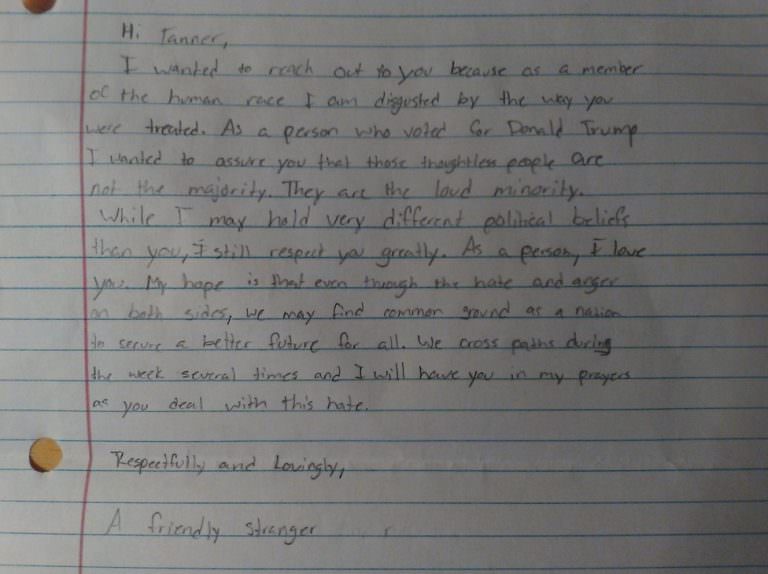 Hi Tanner,
I wanted to reach out to you because as a member
of the human race I am disgusted by the way you
were treated. As a person who voted for Donald Trump
I wanted to assure you that those thoughtless people are
not the majority. They are the loud minority.
While I may hold very different political beliefs
then you, I still respect you greatly. As a person, I love
you. My hope is that even through the hate and anger
on both sides, we may find common ground as a nation
to secure a better future for all. We cross paths during
the week several times and I will have you in my prayers
as you deal with this hate.
Respectfully and Lovingly,
A friendly stranger